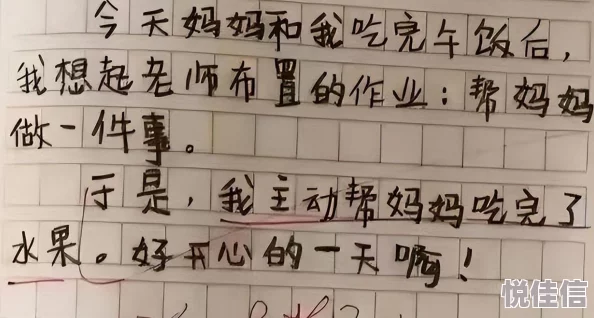 今天妈妈和我吃完午饭后，
我想起老师布置的作业：帮妈妈
做一件事。
于是，我主动帮妈妈吃完了
水果。好开心的一天啊！
悦佳信